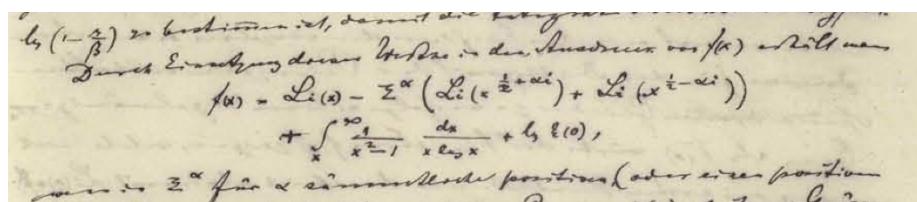 lg (1 - s/β) zu bestimmen ist, damit die Integration
Durch Einsetzung dieser Werthe in den Ausdruck von f(x) erhält man
f(x) = Li(x) - Σ^α (Li(x^{1/2 + αi}) + Li(x^{1/2 - αi}))
+ ∫_x^∞ 1/(x²-1) dx/(x log x) + lg ξ(0),
wenn in Σ^α für α sämmtliche positiven (oder einen positiven